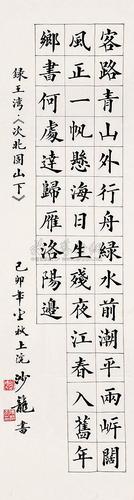 客路青山外行舟綠水前潮平兩岍闊
風正一帆懸海日生殘夜江春入舊年
鄉書何處達歸雁洛陽邊
錄王湾《次北固山下》
己卯年 上院 沙龍書